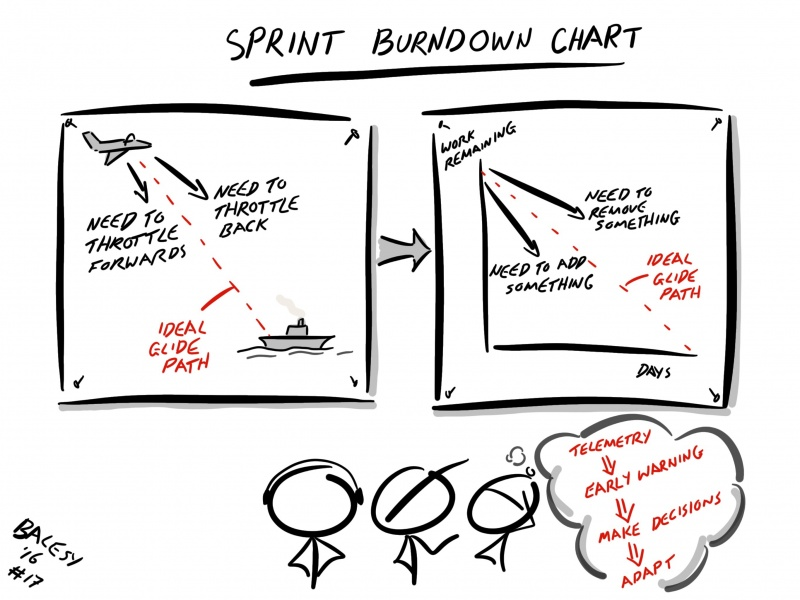 SPRINT BURNDOWN CHART
NEED TO
THROTTLE
BACK
NEED TO
THROTTLE
FORWARDS
IDEAL
GLIDE
PATH
WORK
REMAINING
NEED TO
REMOVE
SOMETHING
NEED TO ADD
SOMETHING
IDEAL
GLIDE
PATH
DAYS
TELEMETRY
EARLY WARNING
MAKE DECISIONS
ADAPT
BALESY
'16
#17